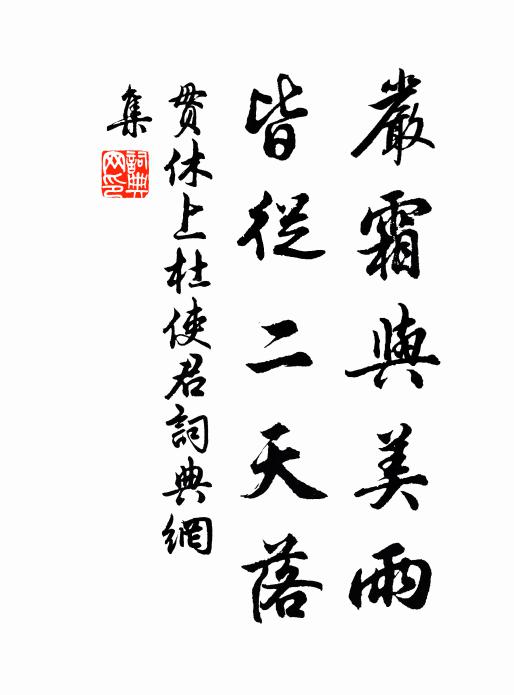 嚴霜與美雨
皆從二天落
貫休上杜使君詞典網
集
詞典
网印